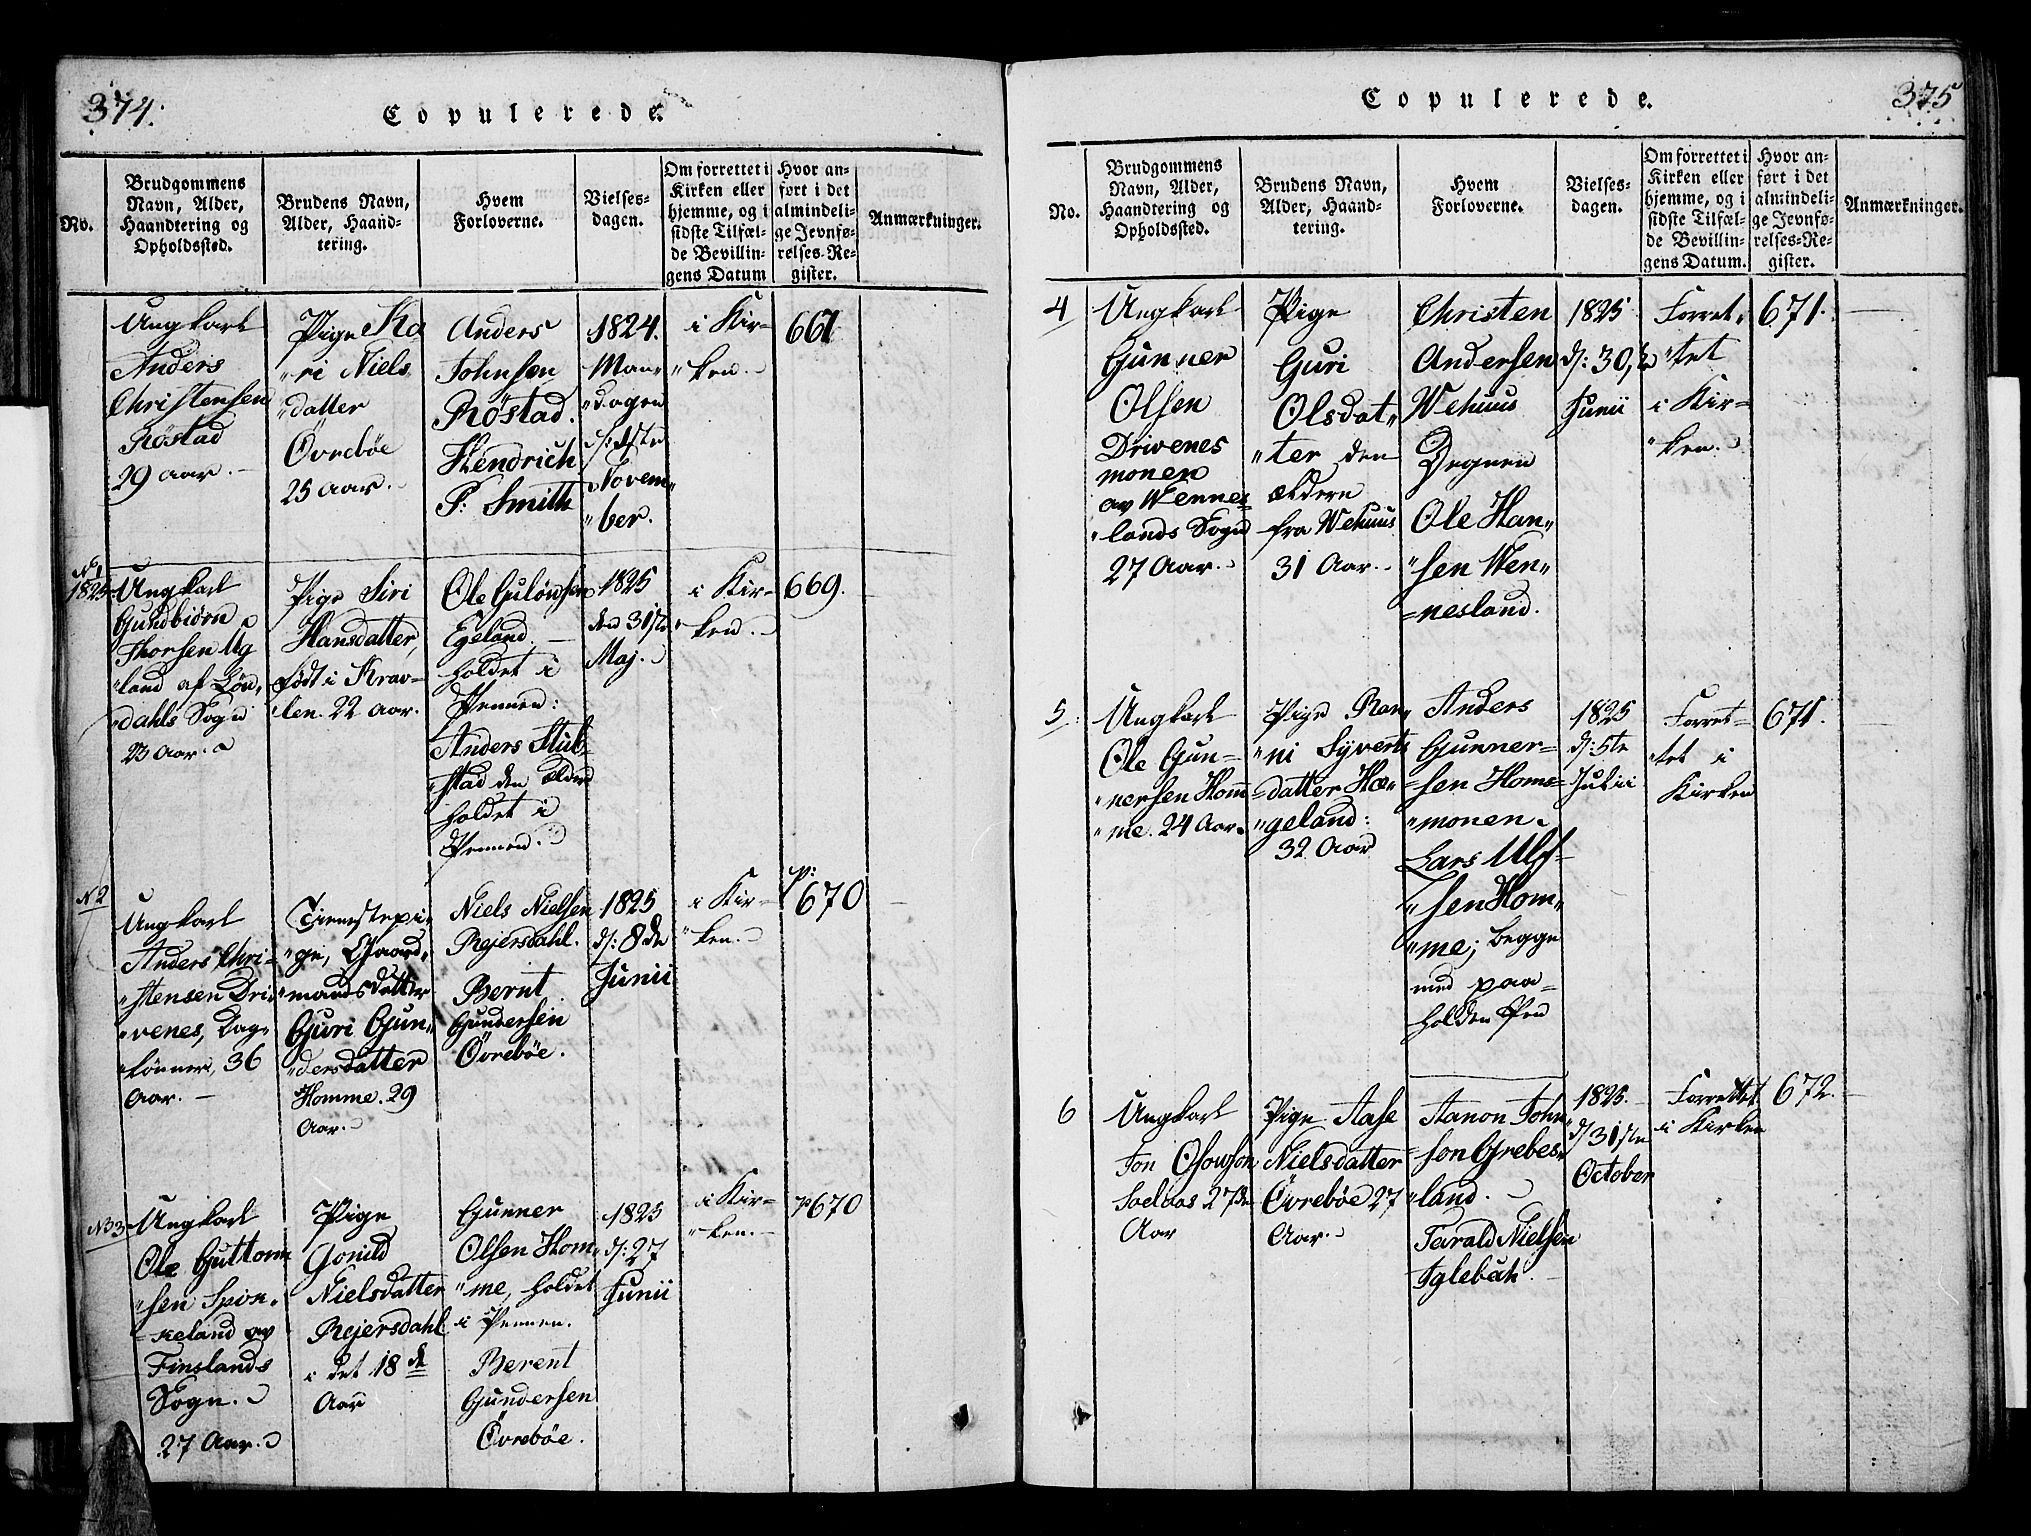 374.
Copulerede.
No.
Brudgommens
Navn, Alder,
Haandtering og
Opholdssted.
Brudens Navn,
Alder, Haand-
tering.
Hvem
Forloverne.
Vielses-
dagen.
Om forrettet i
Kirken eller
hjemme, og i
sidste Tilfæl-
de Bevillin-
gens Datum
Hvor an-
ført i det
almindeli-
ge Jevnfø-
relses-Re-
gister.
Anmærkninger.
Ungkarl
Anders
Christensen
Röstad
29 Aar.
Pige Ka
"ri Niels
"datter
Övrebøe
25 Aar.
Anders
Johnsen
Röstad.
Hendrich
P. Smith
1824.
Man-
"dagen
Novem"
"ber.
i Kir-
"ken.
661
N. 1
1825
Ungkarl
Gundbiörn
Thorsen Ug
"land af Løn,
"dahls Sogn
23 Aar.
Pige Siri
Hansdatter,
født i Krav-
"len. 22 Aar.
Ole Gulowsen
Egeland.
holdet i
Pennen:
Anders Stub-
"stad den Ældre
holdet i
Pennen.
1825
den 31ste
Maj.
i Kir-
"ken.
669.
N 2
Ungkarl
Anders Chri-
"stensen Dri
"venes, Dag-
lønner, 36
Aar.
Tienestepi-
"ge, Gaard-
"mandsdatter
Guri Gun"
"dersdatter
Homme. 29
Aar.
Niels Nielsen
Rejersdahl.
Bernt
Gundersen
Övrebøe.
1825
d: 8de
Junii
i Kir-
"ken.
p:
670
N 3
Ungkarl
Ole Guttorm
"sen Spin-
keland av
Finslands
Sogn.
27 Aar.
Pige
Gonild
Nielsdatter
Rejersdahl
i det 18de
Aar
Gunner
Olsen Hom"
"me, holdet
i Pennen.
Berent
Gundersen
Övrebøe.
1825
d: 27
Junii
i Kir-
"ken.
p 670
375
Copulerede.
No.
Brudgommens
Navn, Alder,
Haandtering og
Opholdssted.
Brudens Navn,
Alder, Haand-
tering.
Hvem
Forloverne.
Vielses-
dagen.
Om forrettet i
Kirken eller
hjemme, og i
sidste Tilfæl-
de Bevillin-
gens Datum.
Hvor an-
ført i det
almindeli-
ge Jevnfø-
relses-Re-
gister.
Anmærkninger.
4
Ungkarl
Gunner
Olsen
Drivenes
monen
av Wennes
"lands Sogn
27 Aar.
Pige
Guri
Olsdat"
"ter den
ældere
fra Wehuus
31 Aar.
Christen
Andersen
Wehuus
Degnen
Ole Han"
"sen Wen"
=nesland.
1825
d: 30,
Junii
Forret,
"tet
i Kir=
"ken.
671.
5.
Ungkarl
Ole Gun=
"nersen Hom
"me. 24 Aar.
Pige Ran"
"ni Syverts
=datter Hæ"
"geland:
32 Aar
Anders
Gunner=
=sen Home=
"monen.
Lars Ulf-
"sen Hom"
"me; begge
med paa=
holden Pen
1825
d: 5te
Julii
Forret-
"tet i
Kirken
671.
6
Ungkarl
Jon Osowson
27de
Aar
Pige Aase
Nielsdatter
Övrebøe 27
Aar.
Aanon John"
"son Grebes"
"land.
Tarald Nielsen
Iglebæk.
1825.
d 31ste
October
Forrettet
i Kirken
672.